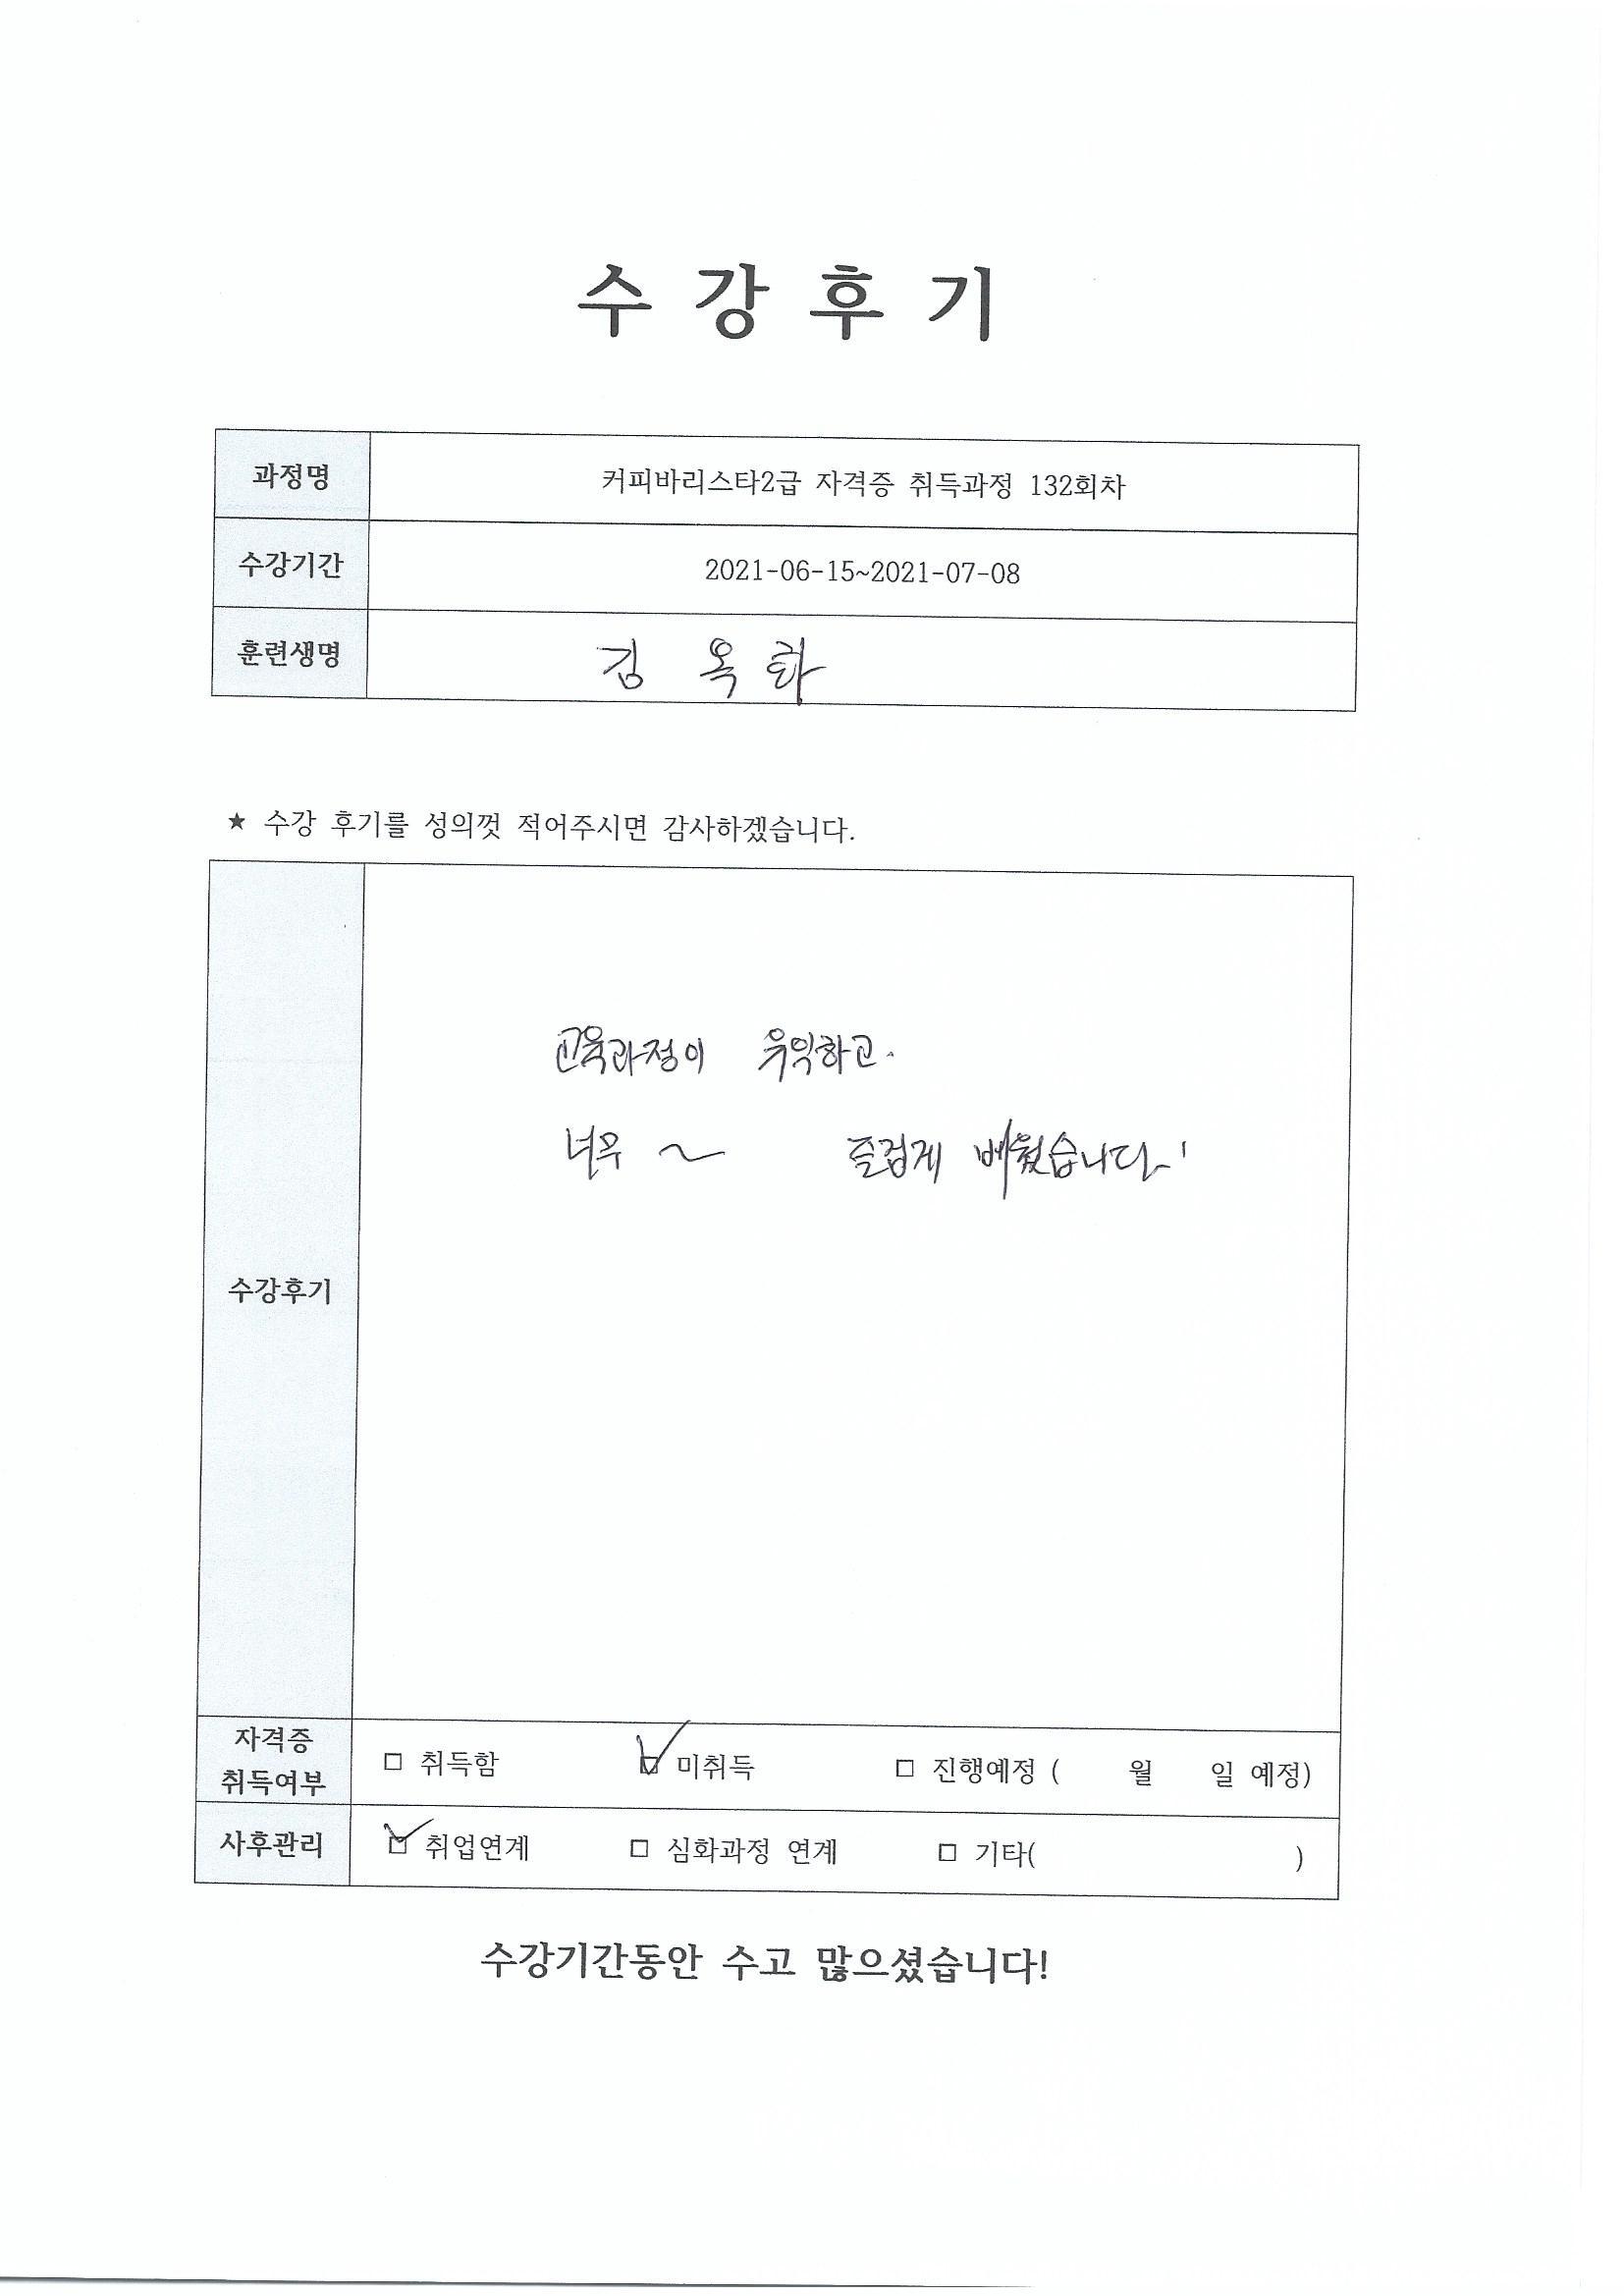 수 강 후 기
과정명 커피바리스타2급 자격증 취득과정 132회차
수강기간 2021-06-15~2021-07-08
훈련생명 김 옥 화
★ 수강 후기를 성의껏 적어주시면 감사하겠습니다.
교육과정이 유익하고.
너무 ~ 즐겁게 배웠습니다!
수강후기
자격증
취득여부
□ 취득함 ☑ 미취득 □ 진행예정 ( 월 일 예정)
사후관리 ☑ 취업연계 □ 심화과정 연계 □ 기타( )
수강기간동안 수고 많으셨습니다!